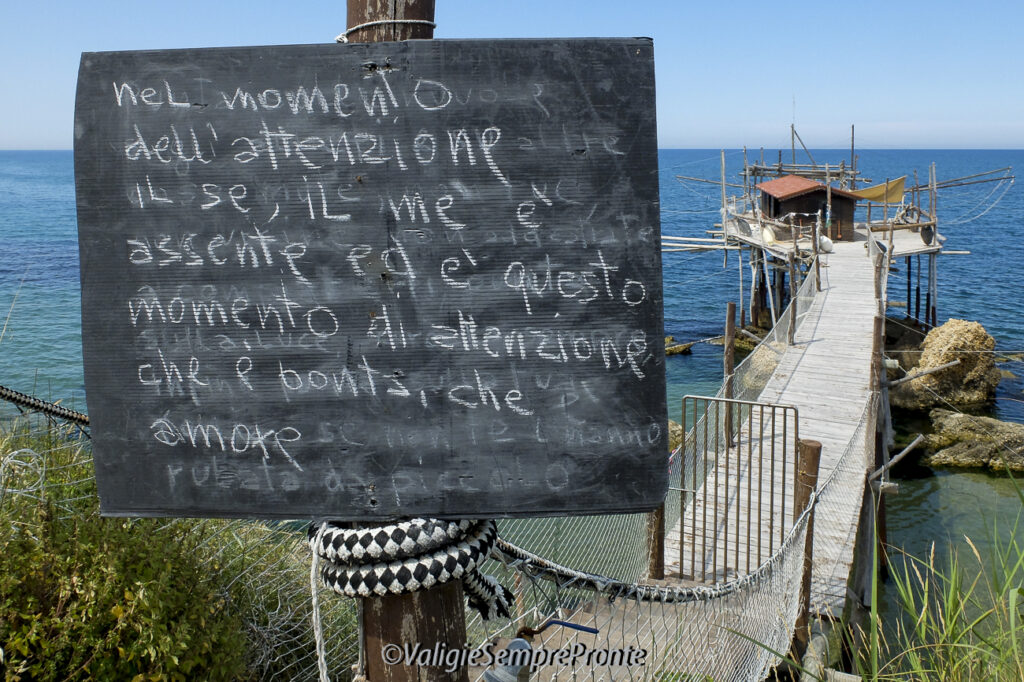 nel momento
dell'attenzione
il se, il me è
assente ed è questo
momento di attenzione,
che è bontà, che è
amore
rubata da piccolo
©ValigieSemprePronte